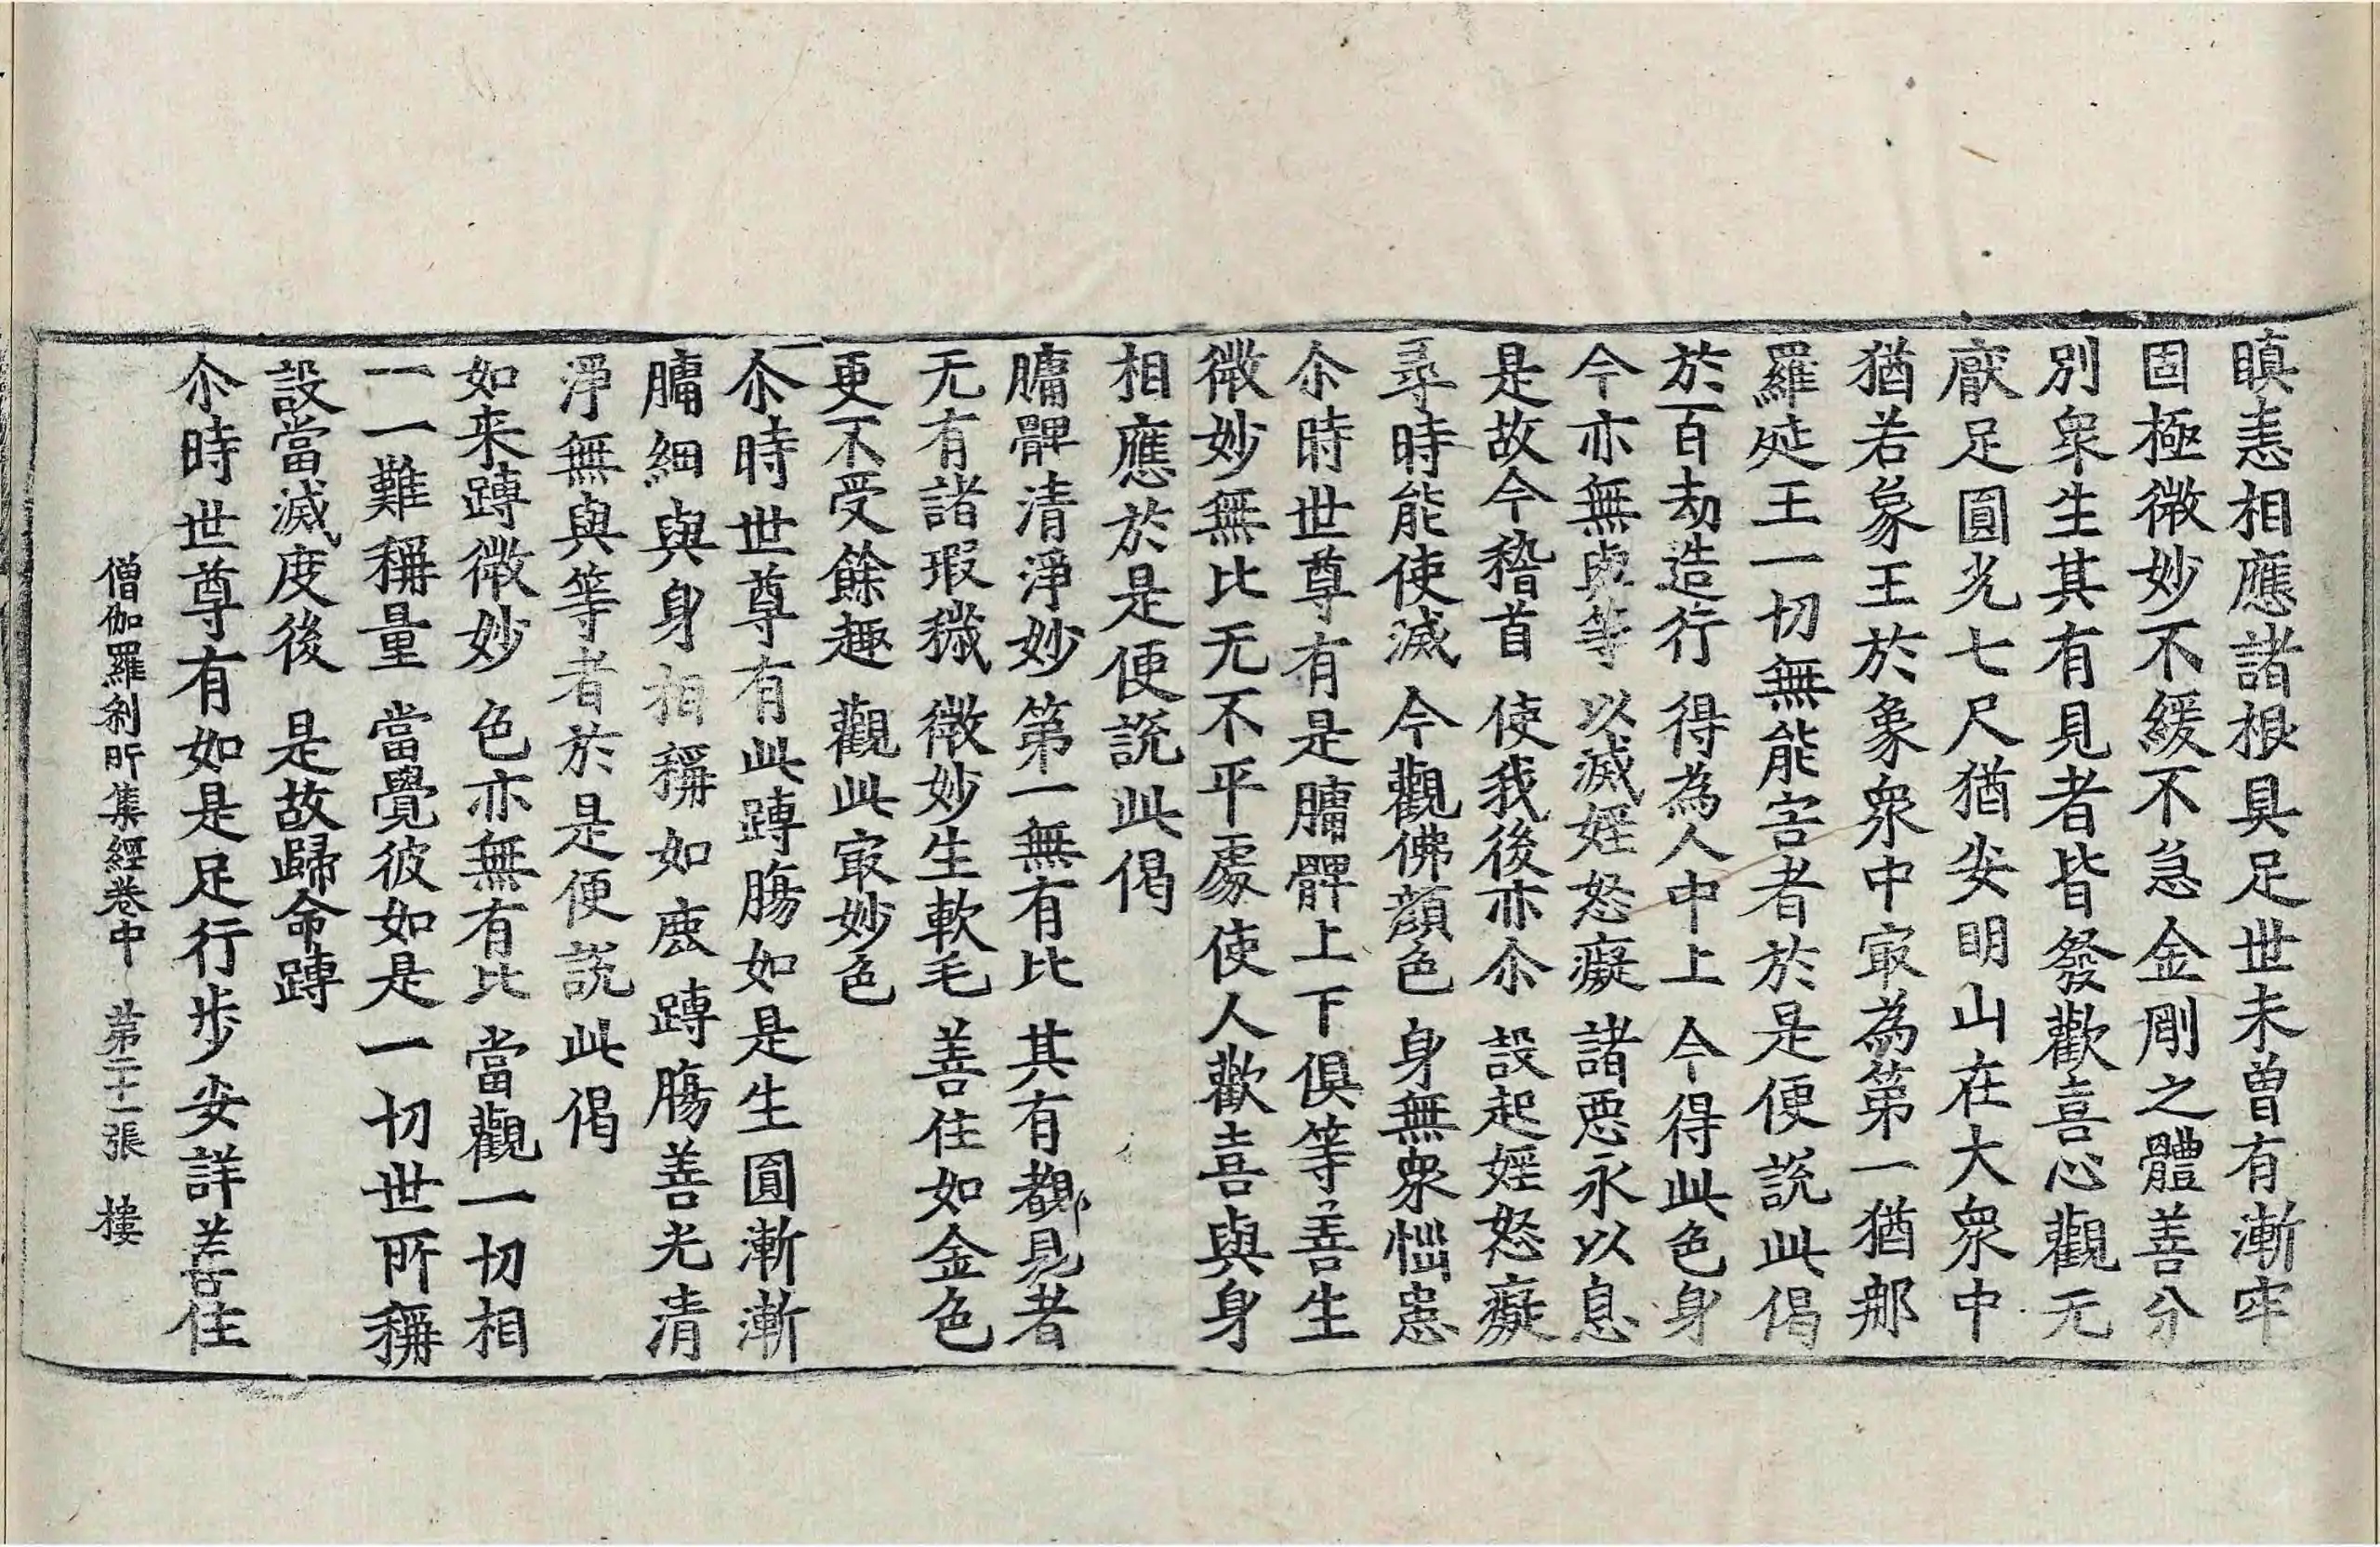 瞋恚相應諸根具足世未曾有漸牢
固極微妙不緩不急金剛之體善分
別衆生其有見者皆發歡喜心觀无
厭足圓光七尺猶安明山在大衆中
猶若象王於象衆中㝡為第一猶那
羅延王一切無能害者於是便説此偈
於百劫造行 得為人中上 今得此色身
今亦無與等 以滅婬怒癡 諸惡永以息
是故今稽首 使我後亦尒 設起婬怒癡
尋時能使滅 今觀佛顔色 身無衆惱患
尒時世尊有是𦟛髀上下俱等善生
微妙無比无不平處使人歡喜與身
相應於是便説此偈
𦟛髀清淨妙 第一無有比 其有覩見者
无有諸瑕穢 微妙生軟毛 善住如金色
更不受餘趣 觀此㝡妙色
尒時世尊有此蹲腸如是生圓漸漸
𦟛細與身相稱如鹿蹲腸善光清
淨無與等者於是便説此偈
如来蹲微妙 色亦無有比 當觀一切相
一一難稱量 當覺彼如是 一切世所稱
設當滅度後 是故歸命蹲
尒時世尊有如是足行步安詳善住
僧伽羅刹所集經卷中 第二十一張 樓